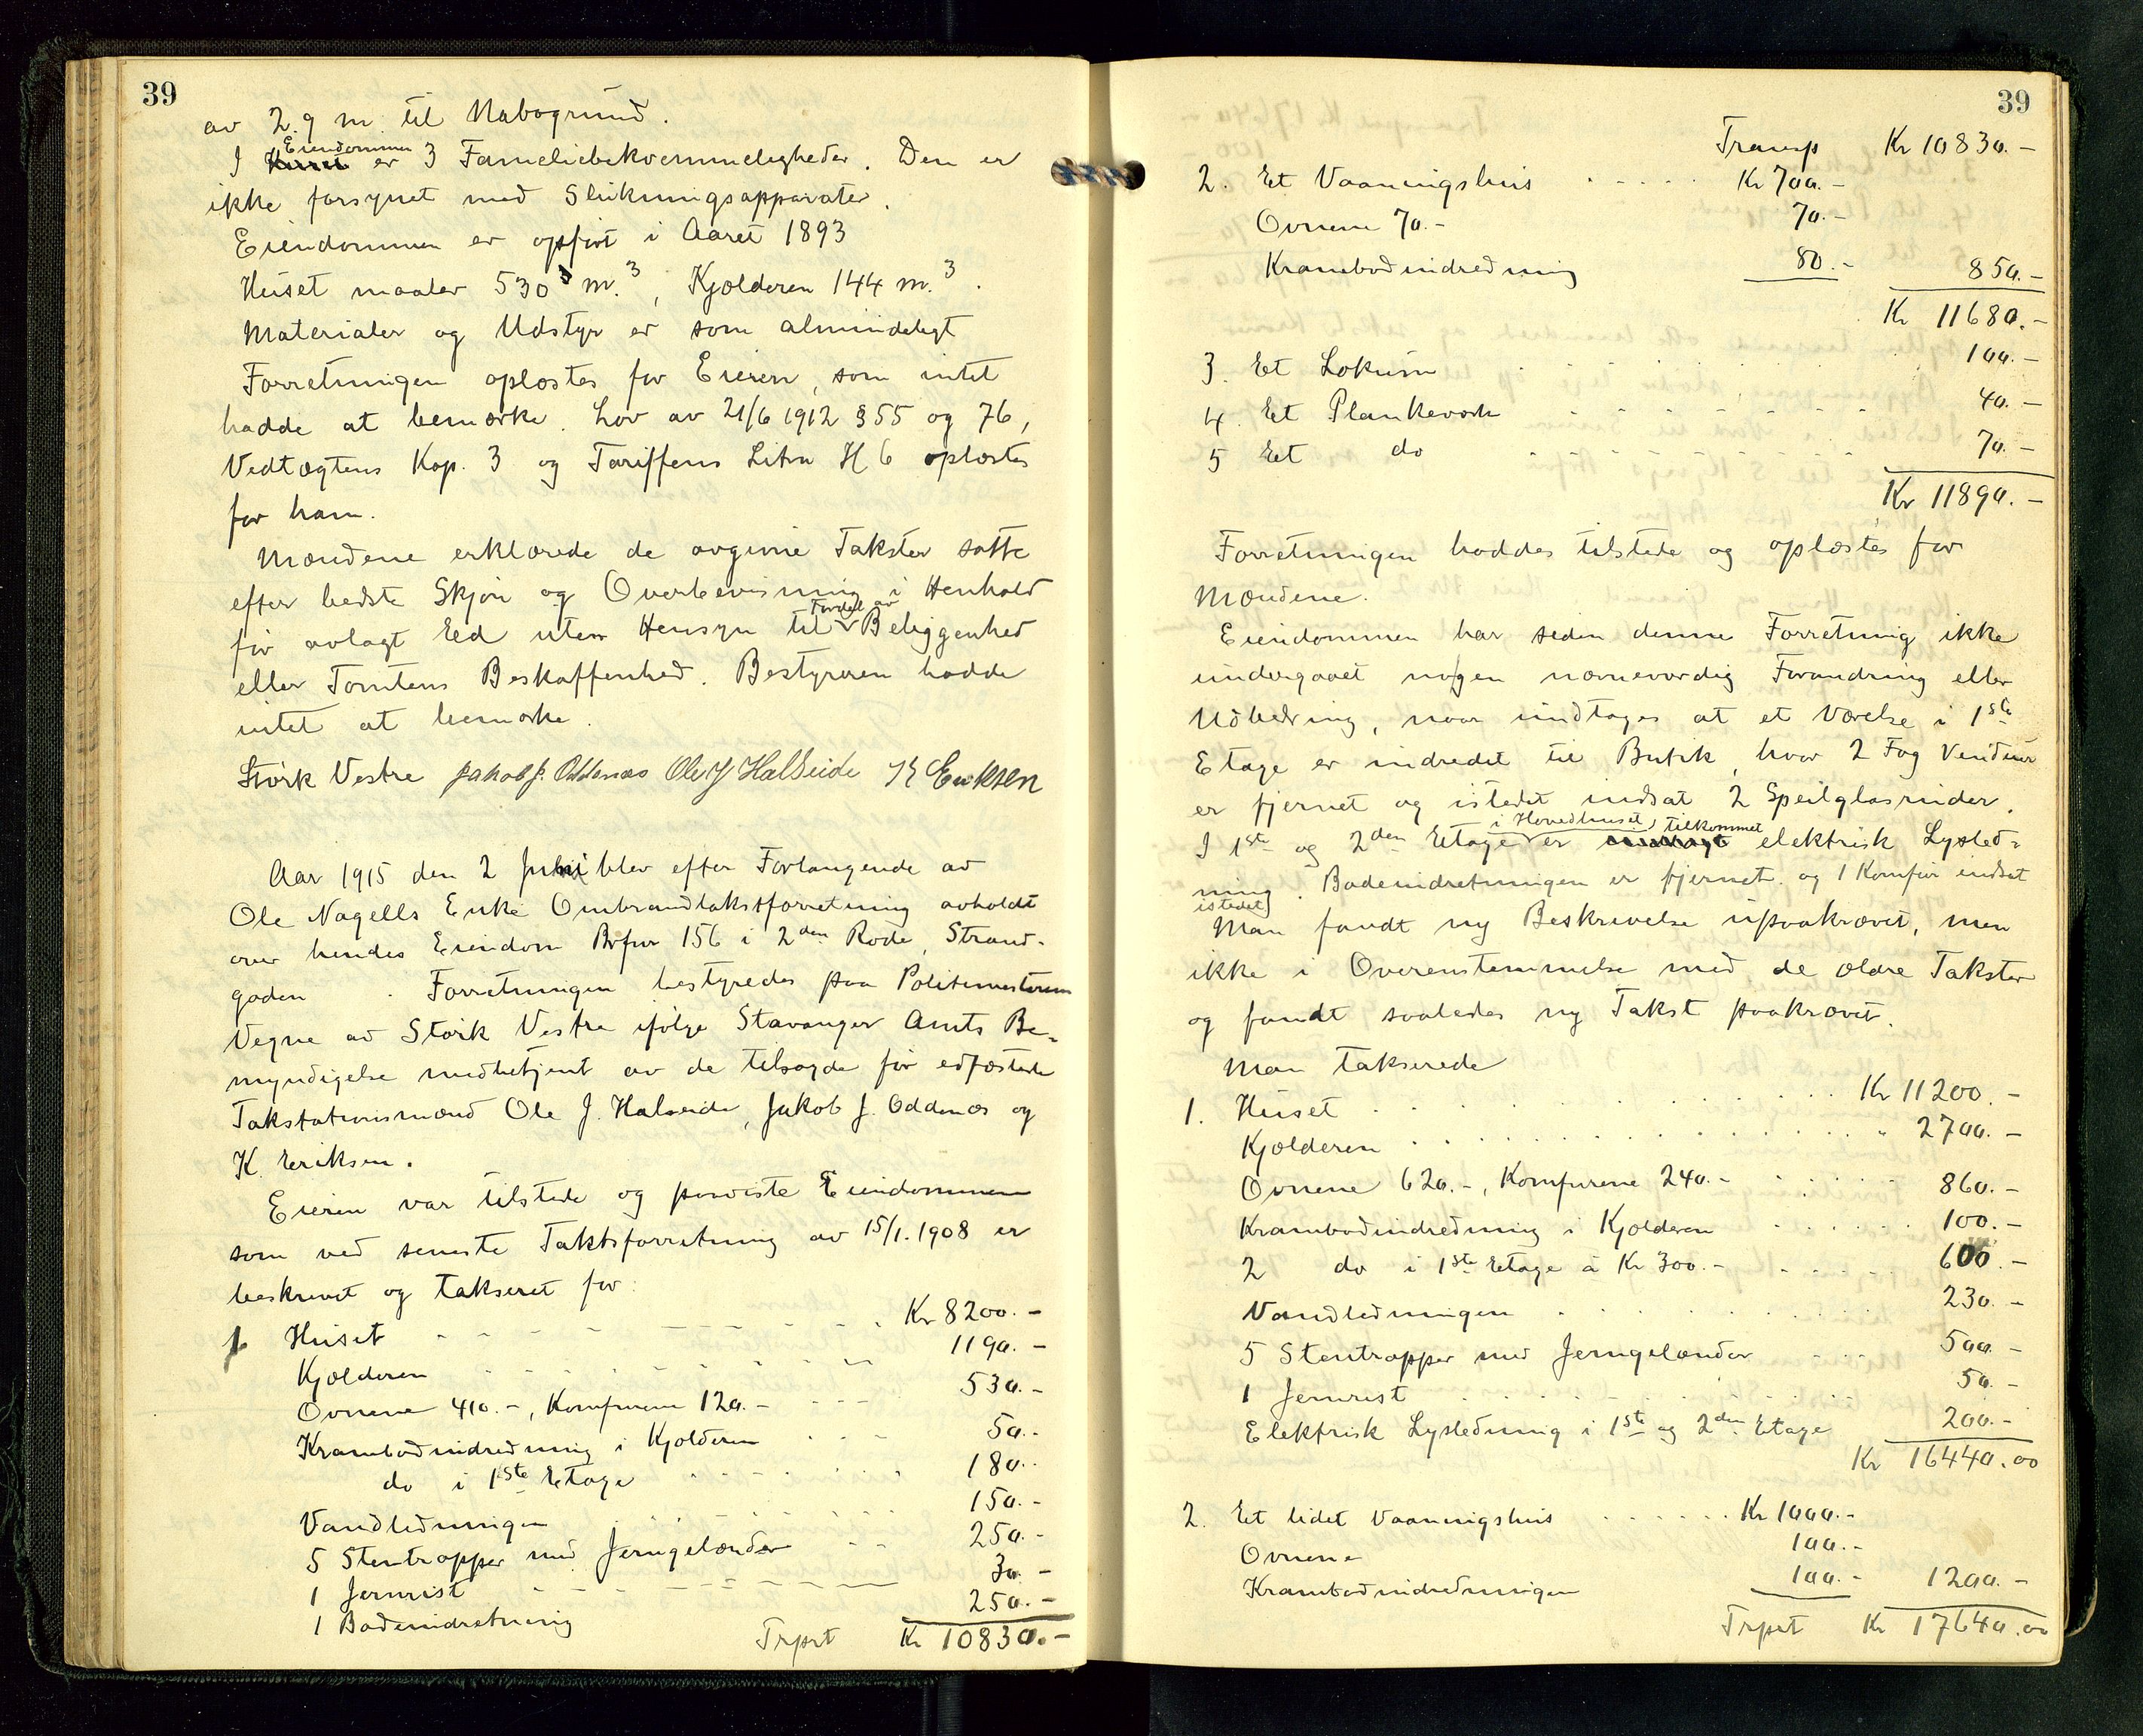 39
av 2.9 m. til Nabogrund.
I Eiendommen er 3 Fameliebekvemmeligheder. Den er
ikke forsynet med Slukningsapparater.
Eiendommen er opført i Aaret 1893
Huset maaler 530 m.³, Kjælderen 144 m.³.
Materialer og Udstyr er som almindeligt
Forretningen oplæstes for Eieren, som intet
hadde at bemærke. Lov av 21/6 1912 § 55 og 76,
Vedtægtens Kap. 3 og Tariffens Litra H 6 oplæstes
for ham.
Mændene erklærede de avgivne Takster satte
efter bedste Skjøn og Overbevisning i Henhold
før avlagt Eed uten Hensyn til Fordel av Beliggenhed
eller Tomtens Beskaffenhed. Bestyreren hadde
intet at bemærke.
Størk Vestre Jakob J. Oddenæs Ole J Halseide K Eriksen
Aar 1915 den 2 Juni blev efter Forlangende av
Ole Nagells Enke Ombrandtakstforretning avholdt
over hendes Eiendom Brfnr 156 i 2den Rode, Strand-
gaden. Forretningen bestyredes paa Politimesterens
Vegne av Størk Vestre ifølge Stavanger Amts Be-
myndigelse medbetjent av de tilsagde før edfæstede
Takstationsmænd Ole J. Halseide, Jakob J. Oddenæs og
K. Eriksen.
Eieren var tilstede og paaviste Eiendommen
som ved seneste Takstforretning av 15/1. 1908 er
beskrevet og takseret for:
1 Huset Kr 8200.-
Kjælderen 1190.-
Ovnene 410.-, Komfurene 120.- 530.-
Krambodindredning i Kjælderen 50.-
do i 1ste Etage 180.-
Vandledningen 150.-
5 Stentrapper med Jerngelænder 250.-
1 Jernrist 30.-
1 Badeindretning 250.-
Trprt Kr 10830.-
39
Transp Kr 10830.-
2. Et Vaaningshus Kr 700.-
Ovnene 70.- 70.-
Krambodindredning 80.- 850.-
Kr 11680.-
3. Et Lokum 100.-
4. Et Plankeværk 40.-
5 Et do 70.-
Kr 11890.-
Forretningen haddes tilstede og oplæstes for
Mændene.
Eiendommen har siden denne Forretning ikke
undergaaet nogen nævneværdig Forandring eller
Udbedring, naar undtages at et Værelse i 1ste
Etage er indredet til Butik, hvor 2 Fag Vinduer
er fjernet og istedet indsat 2 Speilglasruder.
I 1ste og 2den Etage i Hovedhuset, er tilkommet elektrisk Lysled-
ning. Badeindretningen er fjernet. og 1 Komfur indsat
istedet
Man fandt ny Beskrivelse upaakrævet, men
ikke i Overenstemmelse med de ældre Takster
og fandt saaledes ny Takst paakrævet.
Man takserede
1. Huset Kr 11200.-
Kjælderen 2700.-
Ovnene 620.-, Komfurene 240.- 860.-
Krambodindredning i Kjælderen 100.-
2 do i 1ste Etage à Kr 300.- 600.-
Vandledningen 230.-
5 Stentrapper med Jerngelænder 500.-
1 Jernrist 50.-
Elektrisk Lysledning i 1ste og 2den Etage 200.-
Kr 16440.00
2. Et lidet Vaaningshus Kr 1000.-
Ovnene 100.-
Krambodindredningen 100.- 1200.-
Trprt Kr 17640.00